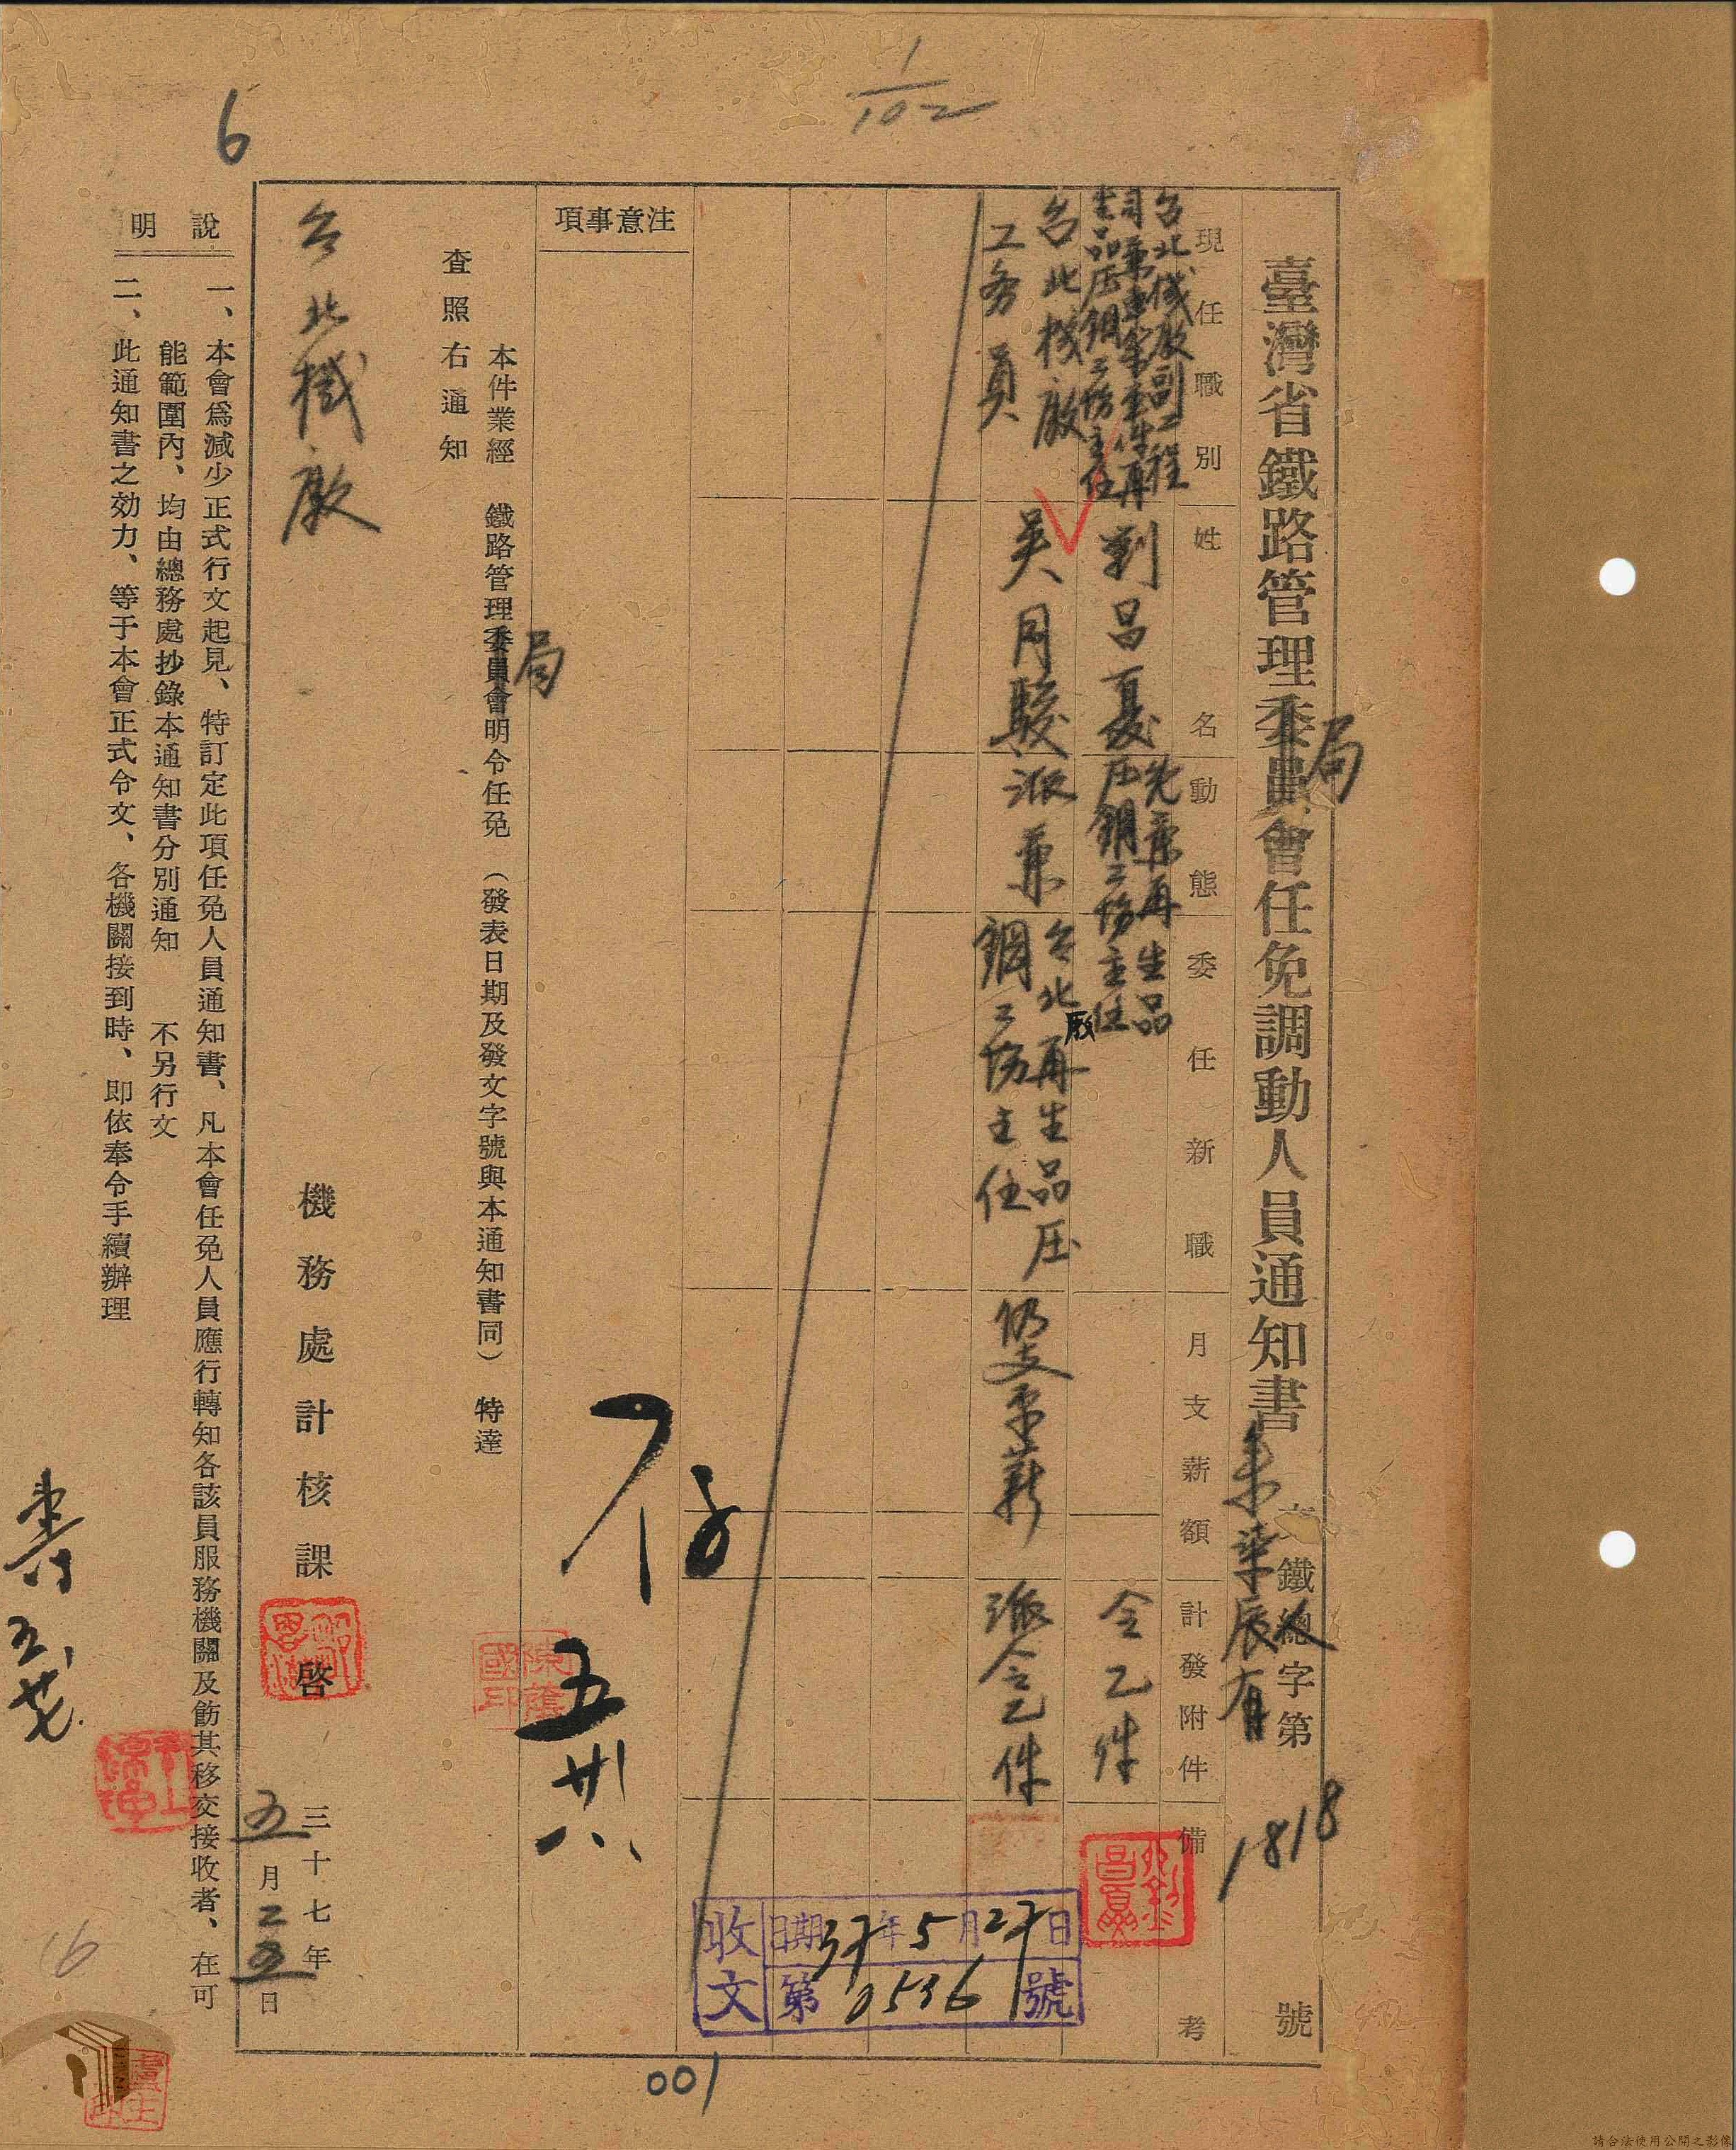 1/102
6
臺灣省鐵路管理委員會任免調動人員通知書
局
鐵總字第
人
辰有
1818
號
現任職別
姓名
動態
委任新職
月支薪額
計發附件
備考
台北機廠副工程
司兼車輛零件再
生品压鋼工場主任
劉昌夏
免兼再生品
压鋼工場主任
令乙件
台北機廠
工务員
吳月駿
派兼
台北廠再生品压
鋼工場主任
仍支原薪
派令乙件
注意事項
存
五
廿八
本件業經 鐵路管理委員會明令任免(發表日期及發文字號與本通知書同) 特達
局
查照右通知
台北機廠
機務處計核課 啓
三十七年
五月二五日
說明
一、本會爲減少正式行文起見、特訂定此項任免人員通知書、凡本會任免人員應行轉知各該員服務機關及飭其移交接收者、在可
能範圍內、均由總務處抄錄本通知書分別通知 不另行文
二、此通知書之効力、等于本會正式令文、各機關接到時、即依奉令手續辦理
收文
日期37年5月27日
第0536號
劉昌夏
001
16
請合法使用公開之影像